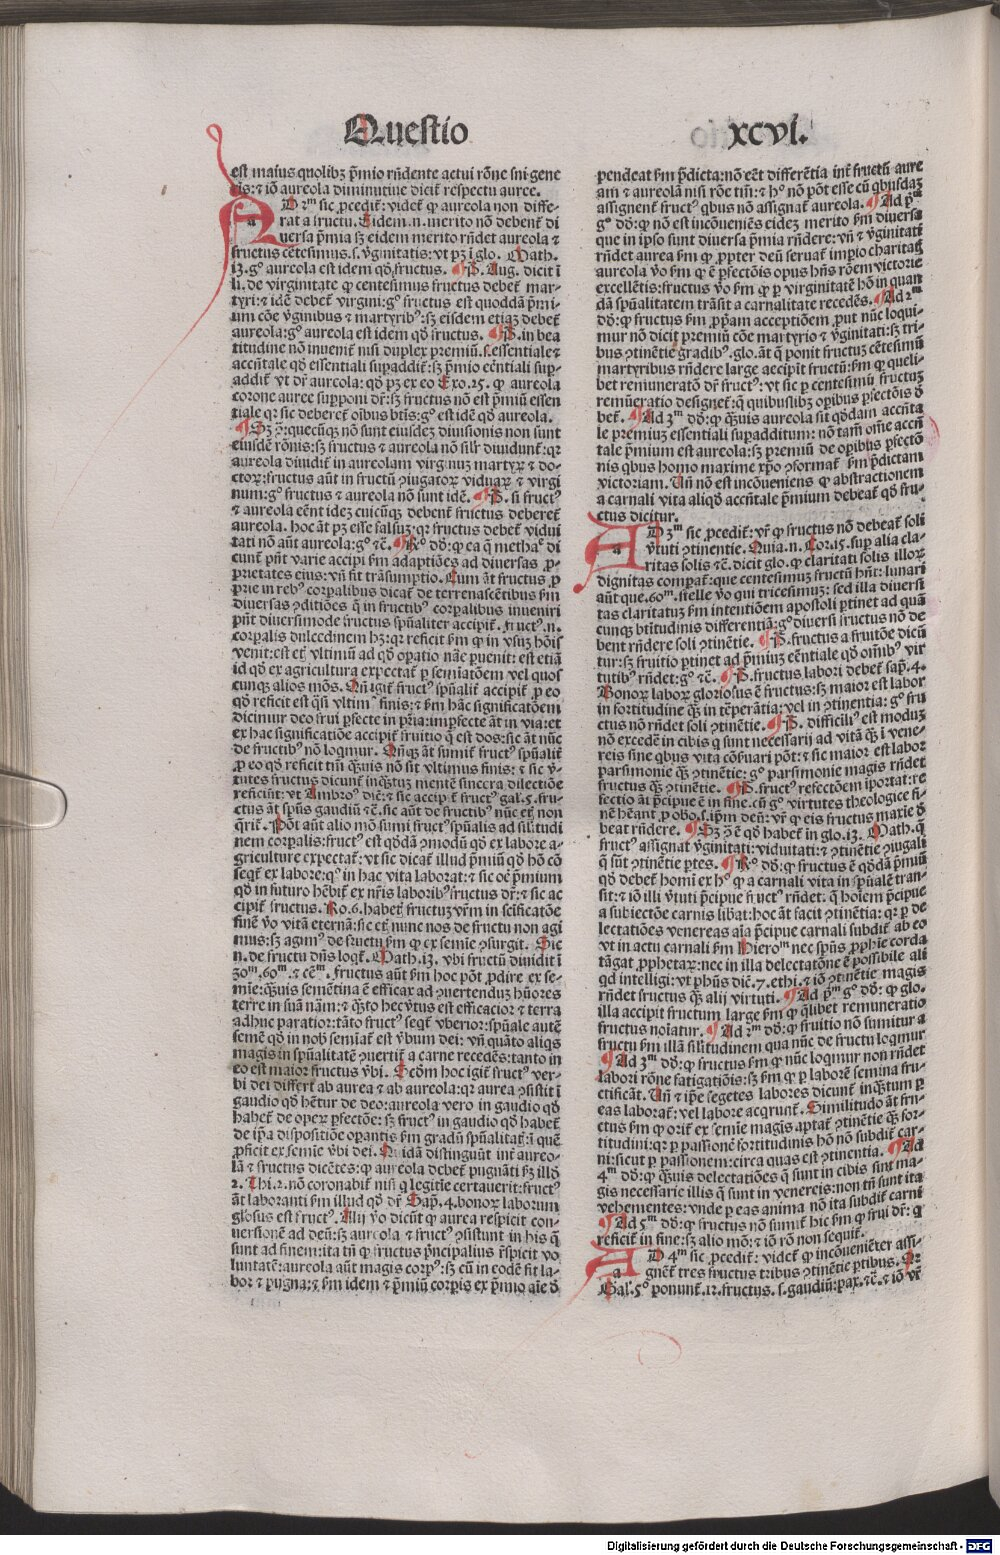 Questio
xcvi.
est maius quolibꝫ p̃mio rñdente actui rõne sui gene
ris: ⁊ iõ aureola diminutiue dicit᷑ respectu auree.
AD 2ᵐ sic ꝓcedit᷑: videt᷑ ꝙ aureola non diffe-
rat a fructu. Eidem .n. merito nõ debent᷑ di
uersa p̃mia sꝫ eidem merito rñdet aureola ⁊
fructus cẽtesimus .s. v̓ginitatis: vt pꝫ ĩ glo. Math.
13. gᵒ aureola est idem qđ fructus. ¶P. Aug. dicit ĩ
li. de virginitate ꝙ centesimus fructus debet᷑ mar-
tyri: ⁊ idẽ debet᷑ virgini: gᵒ fructus est quoddã p̃mi-
um cõe v̓ginibus ⁊ martyribꝰ: sꝫ eisdem etiaꝫ debet᷑
aureola: gᵒ aureola est idem qđ fructus. ¶P. in bea
titudine nõ inuenit᷑ nisi duplex p̃remiũ .s. essentiale ⁊
accñtale qđ essentiali suꝑaddit᷑: sꝫ p̃mio eẽntiali suꝑ-
addit᷑ vt dr̃ aureola: qđ pꝫ ex eo Exo. 25. ꝙ aureola
corone auree supponi dr̃: sꝫ fructus nõ est p̃miũ essen
tiale qꝛ sic deberet᷑ oĩbus bt̃is: gᵒ est idẽ qđ aureola.
¶Sꝫ ꝯ̃: quecũqꝫ nõ sunt eiusdeꝫ diuisionis non sunt
eiusdẽ rõnis: sꝫ fructus ⁊ aureola nõ sil̃r diuidunt᷑: qꝛ
aureola diuidit᷑ in aureolam virginuꝫ martyꝝ ⁊ do-
ctoꝝ: fructus aũt in fructũ ꝯiugatoꝝ viduaꝝ ⁊ virgi
num: gᵒ fructus ⁊ aureola nõ sunt idẽ. ¶P. si fructꝰ
⁊ aureola eẽnt ideꝫ cuicũqꝫ debent᷑ fructus deberet᷑
aureola. hoc ãt pꝫ esse falsuꝫ: qꝛ fructus debet᷑ vidui
tati nõ aũt aureola: gᵒ ⁊c̃. ¶Rᵒ dđ: ꝙ ea q̃ methaᵉ di
cunt᷑ pñt varie accipi ẜm adaptiões ad diuersas ꝓ-
prietates eius: vñ fit trãsumptio. Cum ãt fructus ꝓ
prie in rebꝰ corꝑalibus dicat᷑ de terrenascẽtibus ẜm
diuersas ꝯditiões q̃ in fructibꝰ corꝑalibus inueniri
pñt diuersimode fructus spũaliter accipit᷑. fructꝰ .n.
corꝑalis dulcedinem hꝫ: qꝛ reficit ẜm ꝙ in vsuꝫ hõis
venit: est et̃ vltimũ ad qđ oꝑatio nãe ꝑuenit: est etiã
id qđ ex agricultura expectat᷑ ꝑ semiatõem vel quos
cunqꝫ alios mõs. Qñ igit᷑ fructꝰ spũalit᷑ accipit᷑ ꝓ eo
qđ reficit est q̃si vltimꝰ finis: ⁊ ẜm hãc significatõem
dicimur deo frui ꝑfecte in pr̃ia: imꝑfecte ãt in via: et
ex hac significatiõe accipit᷑ fruitio q̃ est dos: sic ãt nũc
de fructibꝰ nõ loqmur. Qñqꝫ ãt sumit᷑ fructꝰ spũalit᷑
ꝓ eo qđ reficit tm̃ q̃uis nõ sit vltimus finis: ⁊ sic v̓-
tutes fructus dicunt᷑ inq̃tuꝫ mentẽ sincera dilectiõe
reficiũt: vt Ambroꝰ dic̃: ⁊ sic accipit᷑ fructꝰ gal. 5. fru-
ctus ãt spũs gaudiũ ⁊c̃. sic aũt de fructibꝰ nũc et̃ non
q̃rit᷑. Põt aũt alio mõ sumi fructꝰ spũalis ad sil̃itudi
nem corꝑalis: fructꝰ est qđdã ꝯmodũ qđ ex labore a-
griculture expectat᷑: vt sic dicat᷑ illud p̃miũ qđ hõ cõ
seqt᷑ ex labore: qᵒ in hac vita laborat: ⁊ sic oẽ p̃mium
qđ in futuro hẽbit᷑ ex nr̃is laboribꝰ fructus dr̃: ⁊ sic ac
cipit᷑ fructus. Ro. 6. habetꝭ fructuꝫ vr̃m in scificatõe
finẽ v̓o vitã eternã: sic et̃ nunc nos de fructu non agi
mus: sꝫ agimꝰ de fructu ẜm ꝙ ex semĩe ꝯsurgit. Sic
.n. de fructu dñs loqt᷑. Math. 13. vbi fructũ diuidit ĩ
30ᵐ. 60ᵐ. ⁊ cẽᵐ. fructus aũt ẜm hoc põt ꝓdire ex se-
mĩe: q̃uis semẽtina ẽ efficax ad ꝯuertenduꝫ hũores
terre in suã nãm: ⁊ q̃to hec v̓tus est efficacior ⁊ terra
adhuc paratior: tãto fructꝰ seqt᷑ vberior: spũale autẽ
semẽ qđ in nob̓ semĩat᷑ est v̓bum dei: vñ quãto aliqs
magis in spũalitatẽ ꝯuertit᷑ a carne recedẽs: tanto in
eo est maior fructus v̓bi. Ecõm hoc igit᷑ fructꝰ ver-
bi dei differt ab aurea ⁊ ab aureola: qꝛ aurea ꝯsistit ĩ
gaudio qđ hẽtur de deo: aureola vero in gaudio qđ
habet᷑ de oꝑeꝝ ꝑfectõe: sꝫ fructꝰ in gaudio qđ habet᷑
de ip̃a dispositiõe oꝑantis ẜm gradũ spũalitatꝭ: ĩ quẽ
ꝓficit ex semĩe v̓bi dei. Quidã distinguũt int᷑ aureo-
lã ⁊ fructus dicẽtes: ꝙ aureola debet᷑ pugnãti ẜꝫ illđ
2. Thi. 2. nõ coronabit᷑ nisi q legitĩe certauerit: fructꝰ
ãt laboranti ẜm illud qđ dr̃ Sap. 4. bonoꝝ laborum
gl̃osus est fructꝰ. Alij v̓o dicũt ꝙ aurea respicit con-
uersionẽ ad deũ: sꝫ aureola ⁊ fructꝰ ꝯsistunt in his q̃
sunt ad finem: ita tñ ꝙ fructus p̃ncipalius r̃spicit vo
luntatẽ: aureola aũt magis corpꝰ: sꝫ cũ in eodẽ sit la-
bor ⁊ pugna: ⁊ ẜm idem ⁊ p̃miũ corꝑis ex p̃mio aĩe đ
pendeat ẜm p̃dicta: nõ eẽt differẽtia int᷑ fructũ aure
am ⁊ aureolã nisi rõe tm̃: ⁊ hᵒ nõ põt esse cũ qbusdaꝫ
assignent᷑ fructꝰ qbus nõ assignat᷑ aureola. ¶Ad pᵐ
gᵒ dđ: ꝙ nõ est incõueniẽs eideꝫ merito ẜm diuersa
que in ipso sunt diuersa p̃mia rñdere: vñ ⁊ v̓ginitati
rñdet aurea ẜm ꝙ ꝓpter deũ seruat᷑ imꝑio charitatꝭ
aureola v̓o ẜm ꝙ ẽ ꝑfectõis opus hñs rõem victorie
excellẽtis: fructus v̓o ẜm ꝙ ꝑ virginitatẽ hõ in quan
dã spũalitatem trãsit a carnalitate recedẽs. ¶Ad 2ᵐ
dđ: ꝙ fructus ẜm ꝓp̃am acceptiõem ꝓut nũc loqui-
mur nõ dicit p̃remiũ cõe martyrio ⁊ v̓ginitati: sꝫ tri-
bus ꝯtinẽtie gradibꝰ. glo. ãt q̃ ponit fructuꝫ cẽtesimũ
martyribus rñdere large accipit fructũ: ẜm ꝙ queli-
bet remuneratõ dr̃ fructꝰ: vt sic ꝑ centesimũ fructuꝫ
remũeratio designet᷑: q̃ quibuslibꝫ opibus ꝑfectõis đ
bet᷑. ¶Ad 3ᵐ dđ: ꝙ q̃uis aureola sit qđdam accñta
le p̃remiuꝫ essentiali suꝑadditum: nõ tam̃ om̃e accñ
tale p̃mium est aureola: sꝫ p̃remiũ de oꝑibus ꝑfectõ
nis qbus homo maxime xp̃o ꝯformat᷑ ẜm p̃dictam
victoriam. Uñ nõ est incõueniens ꝙ abstractionem
a carnali vita aliqđ accñtale p̃mium debeat᷑ qđ fru-
ctus dicitur.
AD 3ᵐ sic ꝓcedit᷑: vr̃ ꝙ fructus nõ debeat᷑ soli
v̓tuti ꝯtinentie. Quia .n. Cor. 15. suꝑ alia cla-
ritas solis ⁊c̃. dicit glo. ꝙ claritati solis illoꝝ
dignitas compat᷑: que centesimuꝫ fructũ hñt: lunari
aũt que .60ᵐ. stelle v̓o qui tricesimuꝫ: sed illa diuersi
tas claritatuꝫ ẜm intentiõem apostoli ꝑtinet ad quã
cunqꝫ btitudinis differentiã: gᵒ diuersi fructus nõ de
bent rñdere soli ꝯtinẽtie. ¶P. fructus a fruitõe dicũ
tur: sꝫ fruitio ꝑtinet ad p̃miuꝫ eẽntiale qđ om̃ibꝰ vir
tutibꝰ rñdet: gᵒ ⁊c̃. ¶P. fructus labori debet᷑ sap̃. 4.
Bonoꝝ laboꝝ gloriosus ẽ fructus: sꝫ maior est labor
in fortitudine q̃ꝫ in tẽperãtia: vel in ꝯtinentia: gᵒ fru
ctus nõ rñdet soli ꝯtinẽtie. ¶P. difficiliꝰ est moduꝫ
nõ excedẽ in cibis q̃ sunt necessarij ad vitã q̃ꝫ ĩ vene-
reis sine qbus vita cõseruari põt: ⁊ sic maior est labor
parsimonie q̃ꝫ ꝯtinẽtie: gᵒ parsimonie magis rñdet
fructus q̃ꝫ ꝯtinẽtie. ¶P. fructꝰ refectõem ĩportat: re
fectio ãt p̃cipue ẽ in fine. cũ gᵒ virtutes theologice fi-
nẽ hẽant ꝓ obo .s. ip̃m deũ: vr̃ ꝙ eis fructus maxie đ
beat rñdere. ¶Sꝫ ꝯ̃ ẽ qđ habet᷑ in glo. 13. Math. q̃
fructꝰ assignat v̓ginitati: viduitati: ⁊ ꝯtinẽtie ꝯiugali
q̃ sũt ꝯtinẽtie ꝑtes. ¶Rᵒ dđ: ꝙ fructus ẽ qđdã p̃miũ
qđ debet᷑ homĩ ex hᵒ ꝙ a carnali vita in spũalẽ tran-
sit: ⁊ iõ illi v̓tuti p̃cipue fructꝰ rñdet: q̃ hoĩem p̃cipue
a subiectõe carnis libat: hoc ãt facit ꝯtinẽtia: qꝛ ꝑ de
lectatiões venereas aĩa p̃cipue carnali subdit᷑ ab eo
vt in actu carnali ẜm Hieromᵐ nec spũs ꝓphie corda
tãgat ꝓphetaꝝ: nec in illa delectatõne ẽ possibile ali
qd intelligi: vt phũs dic̃. 7. ethi. ⁊ iõ ꝯtinẽtie magis
rñdet fructus q̃ꝫ alij virtuti. ¶Ad pᵐ gᵒ dđ: ꝙ glo.
illa accipit fructum large ẜm ꝙ q̃libet remuneratio
fructus noĩatur. ¶Ad 2ᵐ dđ: ꝙ fruitio nõ sumitur a
fructu ẜm illã sil̃itudinem qua nũc de fructu loqmur
¶Ad 3ᵐ dđ: ꝙ fructus ẜm ꝙ nũc loqmur non rñdet
labori rõne fatigatiõis: sꝫ ẜm ꝙ ꝑ laborẽ semina fru-
ctificãt. Uñ ⁊ ip̃e segetes labores dicunt᷑ inq̃tum ꝑ
eas laborat᷑: vel labore acqrunt᷑. Similitudo ãt fru-
ctus ẜm ꝙ orit᷑ ex semĩe magis aptat᷑ ꝯtinẽtie q̃ꝫ for-
titudini: qꝛ ꝑ passionẽ fortitudinis hõ nõ subdit᷑ car-
ni: sicut ꝑ passionem: circa quas est ꝯtinentia. ¶Ad
4ᵐ dđ: ꝙ q̃uis delectatiões q̃ sunt in cibis sint ma-
gis necessarie illis q̃ sunt in venereis: non tñ sunt ita
vehementes: vnde ꝑ eas anima nõ ita subdit᷑ carni
¶Ad 5ᵐ dđ: ꝙ fructus nõ sumit᷑ hic ẜm ꝙ frui dr̃: q
reficit᷑ in fine: sꝫ alio mõ: ⁊ iõ rõ non sequit᷑.
AD 4ᵐ sic ꝓcedit᷑: videt᷑ ꝙ incõueniẽter assi-
gnẽt᷑ tres fructus tribus ꝯtinẽtie ꝑtibus. Qꝛ
Gal. 5ᵒ ponunt᷑ .12. fructus .s. gaudiũ: pax. ⁊c̃. ⁊ iõ vr̃
Digitalisierung gefördert durch die Deutsche Forschungsgemeinschaft - DFG